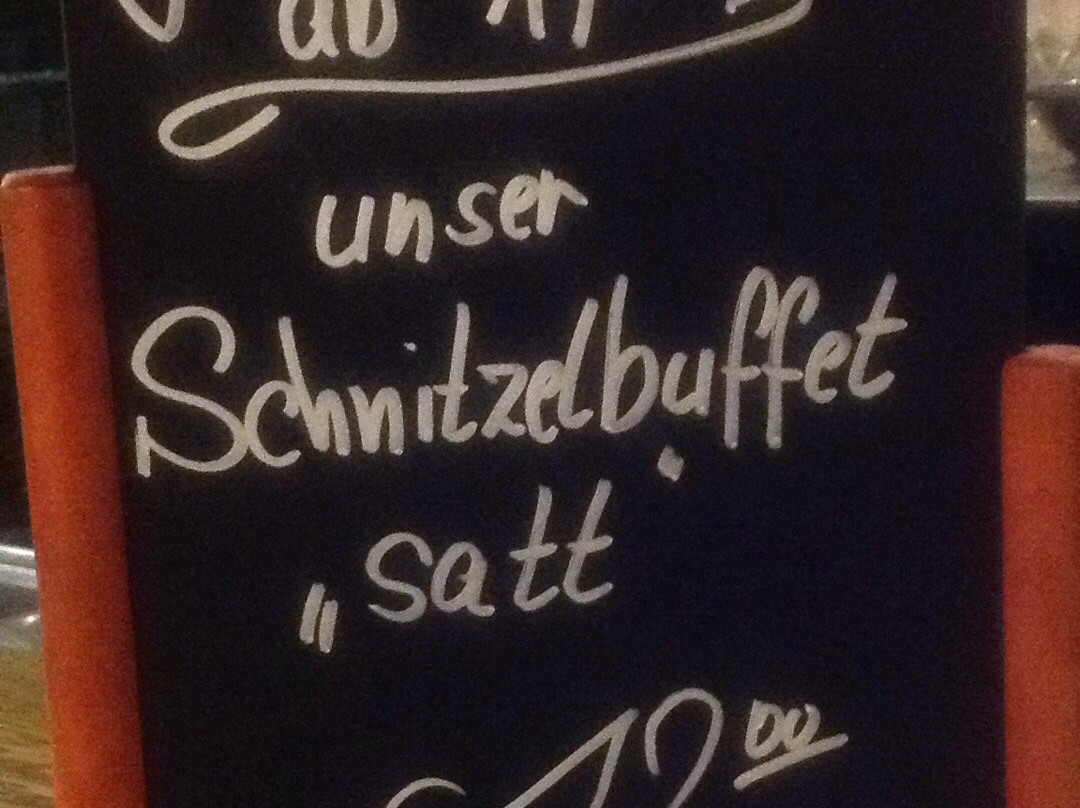 ab
unser
Schnitzelbuffet
„satt"